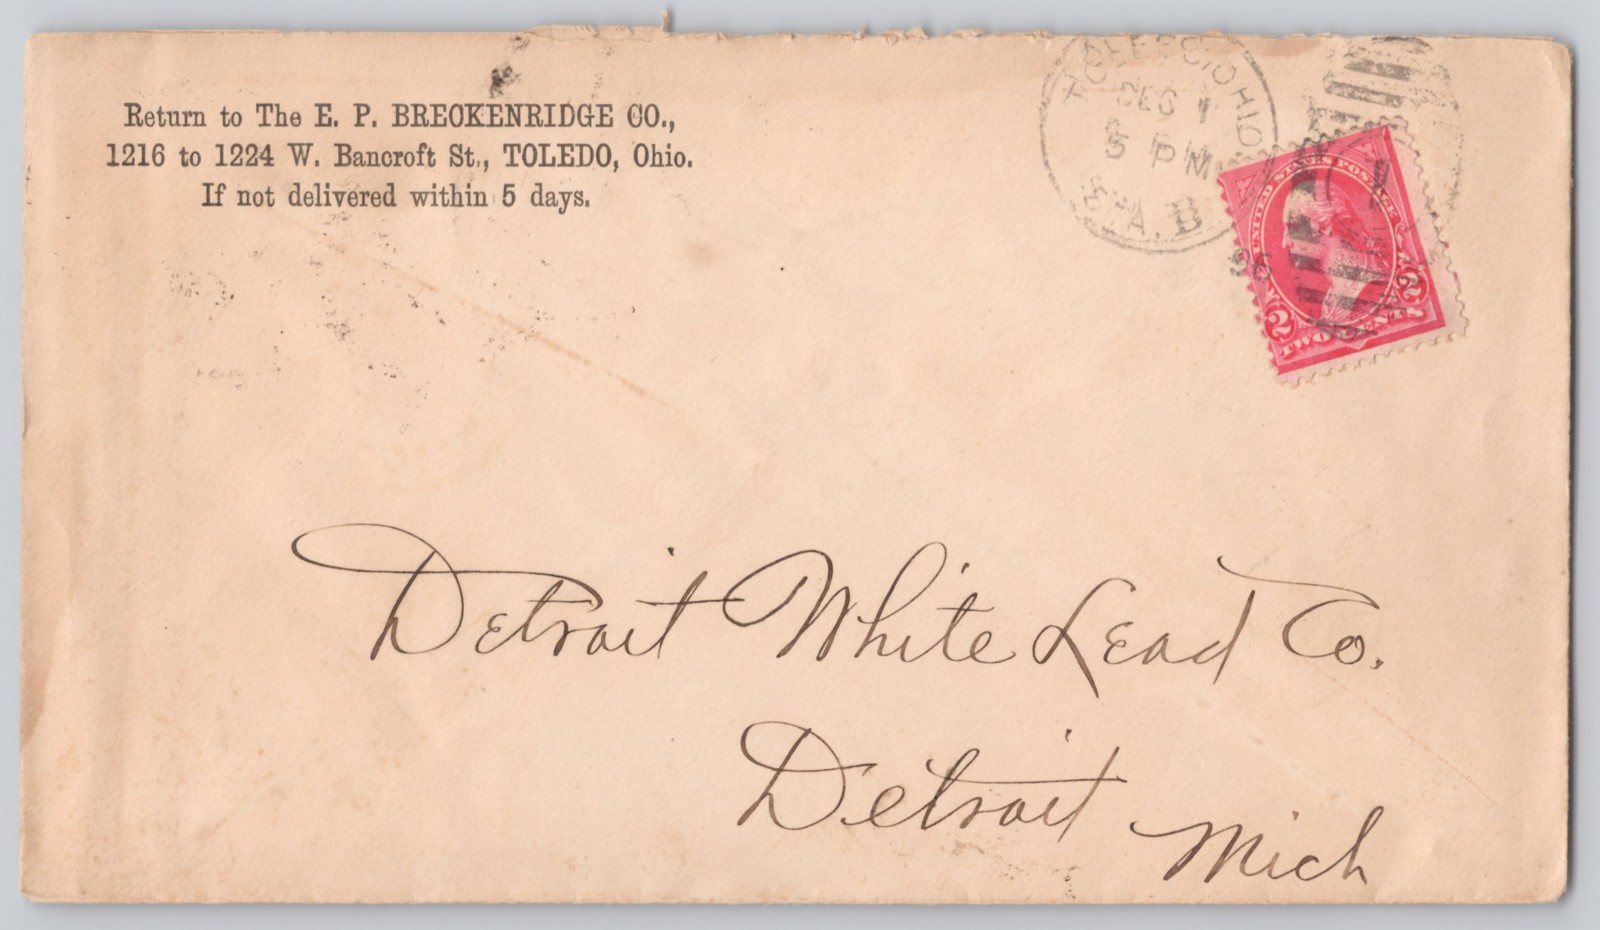 Return to The E. P. BRECKENRIDGE CO.,
1216 to 1224 W. Bancroft St., TOLEDO, Ohio.
If not delivered within 5 days.
TOLEDO OHIO
DEC 1
5 PM
STA. B
96
UNITED STATES POSTAGE
2 2
TWO CENTS
Detroit White Lead Co.
Detroit
Mich